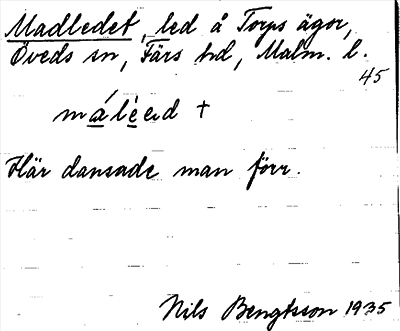 Madledet, led å Torps ägor,
Öveds sn, Färs hd, Malm. l.
45
máléed +
Här dansade man förr.
Nils Bengtsson 1935